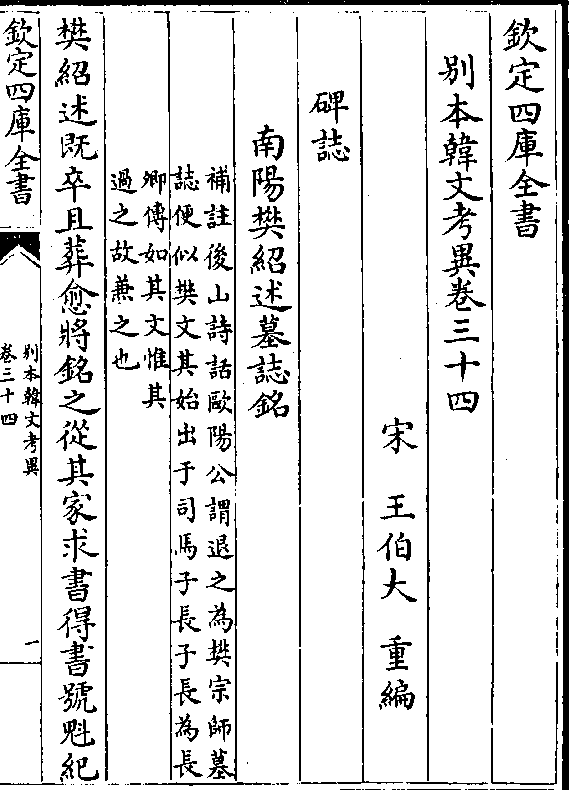 欽定四庫全書
別本韓文考異卷三十四
宋　王伯大　重編
碑誌
南陽樊紹述墓誌銘
補註後山詩話歐陽公謂退之為樊宗師墓
誌便似樊文其始出于司馬子長子長為長
卿傳如其文惟其
過之故兼之也
樊紹述既卒且葬愈將銘之從其家求書得書號魁紀
欽定四庫全書
別本韓文考異
卷三十四
一